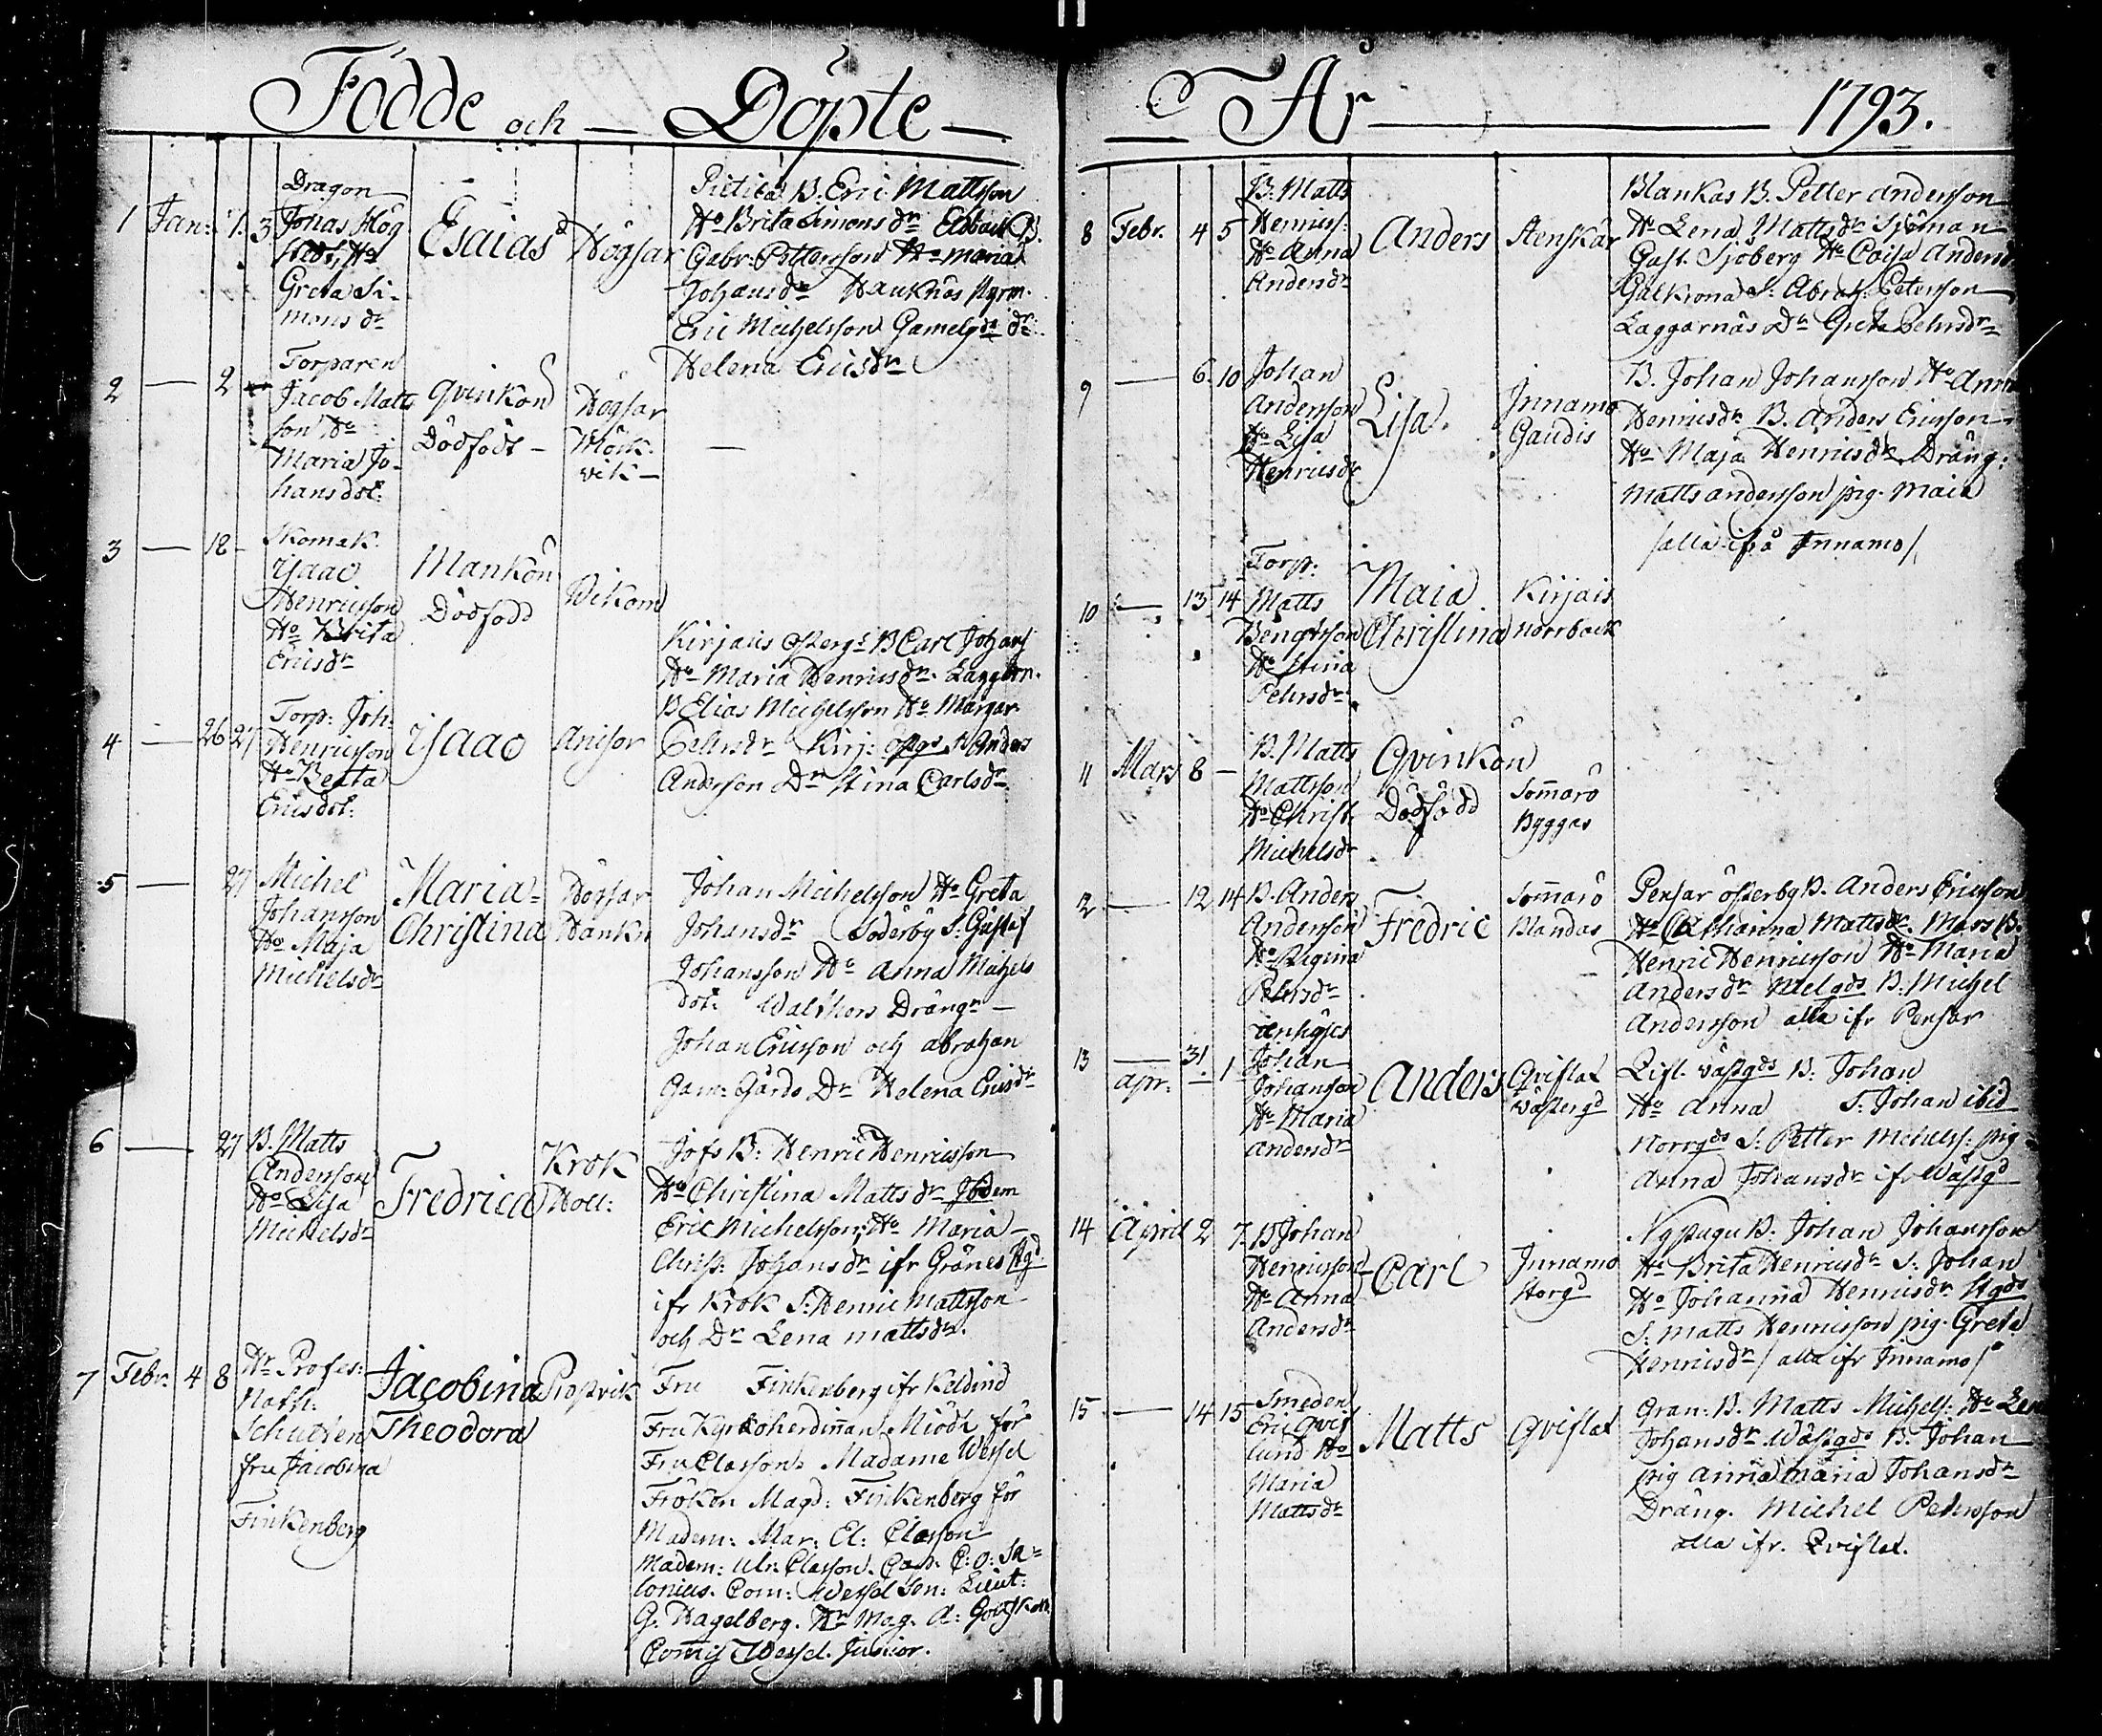 Födde och — Döpte —
1 Jan: 1. 3
Dragon
Jonas Hög
Hu
Greta Si-
mons dr
Esaias
Högsar
B. Eric Mattsson
Hu Brita Simons dr B.
Gabr: Pettersson Hu Maria
Johansdr Hauknäs styrm.
Eric Michelsson Gamelgds dr:
Helena Ericsdr
2 — 2
Torparen
Jacob Matts
son Hu
Maria Jo-
hansdot:
Qvinkön
Dödfödt —
Högsar
Mörk-
vik —
—
3 — 18 -
Skomak.
Isaac
Henricsson
Hu Brita
Ericsdr
Mankön
Dödfödd
Vikom
4 — 26 27
Torp: Joh:
Henricsson
Hu Beata
Ericsdot:
Isaac
Anisor
Kirjais östergd B Carl Johans
Hu Maria Henricsdr. Laggarn.
B Elias Michelsson Hu Margar.
Pehrsdr Kirj: östgd B Anders
Anderson Dr Stina Carlsdr
5 — 27
Michel
Johansson
Hu Maja
Michelsdr
Maria-
Christina
Högsar
Haukn
Johan Michelsson Hu Greta
Johansdr Söderby S: Gustaf
Johansson Hu Anna Michels
dot: Walthors Drängr —
Johan Ericsson och Abraham
Gam: Gårds Dr Helena Ericsdr
6 — 27
B. Matts
Andersson
Hu Lisa
Michelsdr
Fredrica
Krok
Holl:
Jofs B: Henric Henricsson
Hu Christina Matts dr Ibidem
Eric Michelsson, Hu Maria —
Christ: Johansdr ifr Gränes
ifr Krok S: Henric Mattsson
och Dr Lena mattsdr.
7 Febr: 4 8
Hr Profes:
Nath:
Schultén
fru Jacobina
Finkenberg
Jacobina
Theodora
Prostvik
Fru Finkenberg ifr Keldinö
Fru Kyrkoherdinnan Miödh för
Fru Classon. Madame Wessel
Fröken Magd: Finkenberg för
Madem: Mar: El: Classon
Madem: Ulr: Classon. Cap: C: O: Sa-
lonius. Com: Wessel Sen: Lieut:
G. Hagelberg. Hr Mag. A:
Comis Wessel. Junior.
— År — 1793.
8 Febr. 4 5
B: Matts
Henrics:
Hu Anna
Andersdr
Anders
Aenskär
Blankas B. Petter Anderson
Hu Lena Mattsdr Sjöman
Gust. Sjöberg Hu Caisa Anders
Galkrona S: Abrah: Peterson
Laggarnäs Dr Greta Pehrsdr
9 — 6. 10
Johan
Anderson
Hu Lisa
Henricsdr
Lisa.
Innamo
Gaudis
B. Johan Johansson Hu Anna
Henricsdr B. Anders Ericsson
Hu Maja Henricsdr Dräng:
Matts andersson pig. Maia
/alla ifrå Innamo/
10 — 13 14
Torp:
Matts
Bengtsson
Hu Stina
Pehrsdr
Maia
Christina
Kirjais
Norrback
11 Mars 8 —
B. Matts
Mattsson
Hu Christ.
Michelsdr
Qvinkön
Dödfödd
Sommarö
Byggas
12 — 12 14
B. Anders
Anderson
Hu Regina
Pehrsdr
Fredric
Sommarö
Blandas
Pensar österby B. Anders Ericsson
Hu Catharina Mattsdr. Mass B.
Henric Henricsson Hu Maria
Andersdr Melgds B. Michel
Andersson alla ifr Pensar
13 — 31 apr: 1
Inhyses
Johan
Johansson
Hu Maria
Andersdr
Anders
Qvistlat
Wästergd
Qvist. wästgds B: Johan
Hu Anna S: Johan ibid
Norrgds S: Petter Michelss: pig
Anna Johansdr ifr Wästgd
14 April 2 7
B Johan
Henricsson
Hu Anna
Andersdr
Carl
Innamo
Storgd
Nystugu B: Johan Johansson
Hu Brita Henricsdr S: Johan
Hu Johanna Henricsdr Stgds
S: Matts Henricsson pig. Greta
Henricsdr / alla ifr Innamo /
15 — 14 15
Smeden
Eric Qvist
lund Hu
Maria
Mattsdr
Matts
Qvistlat
Gran: B. Matts Michels: Hu Lena
Johansdr. Wästgds B. Johan
pig Anna Maria Johansdr
Dräng. Michel Peterson
alla ifr. Qvistlat.